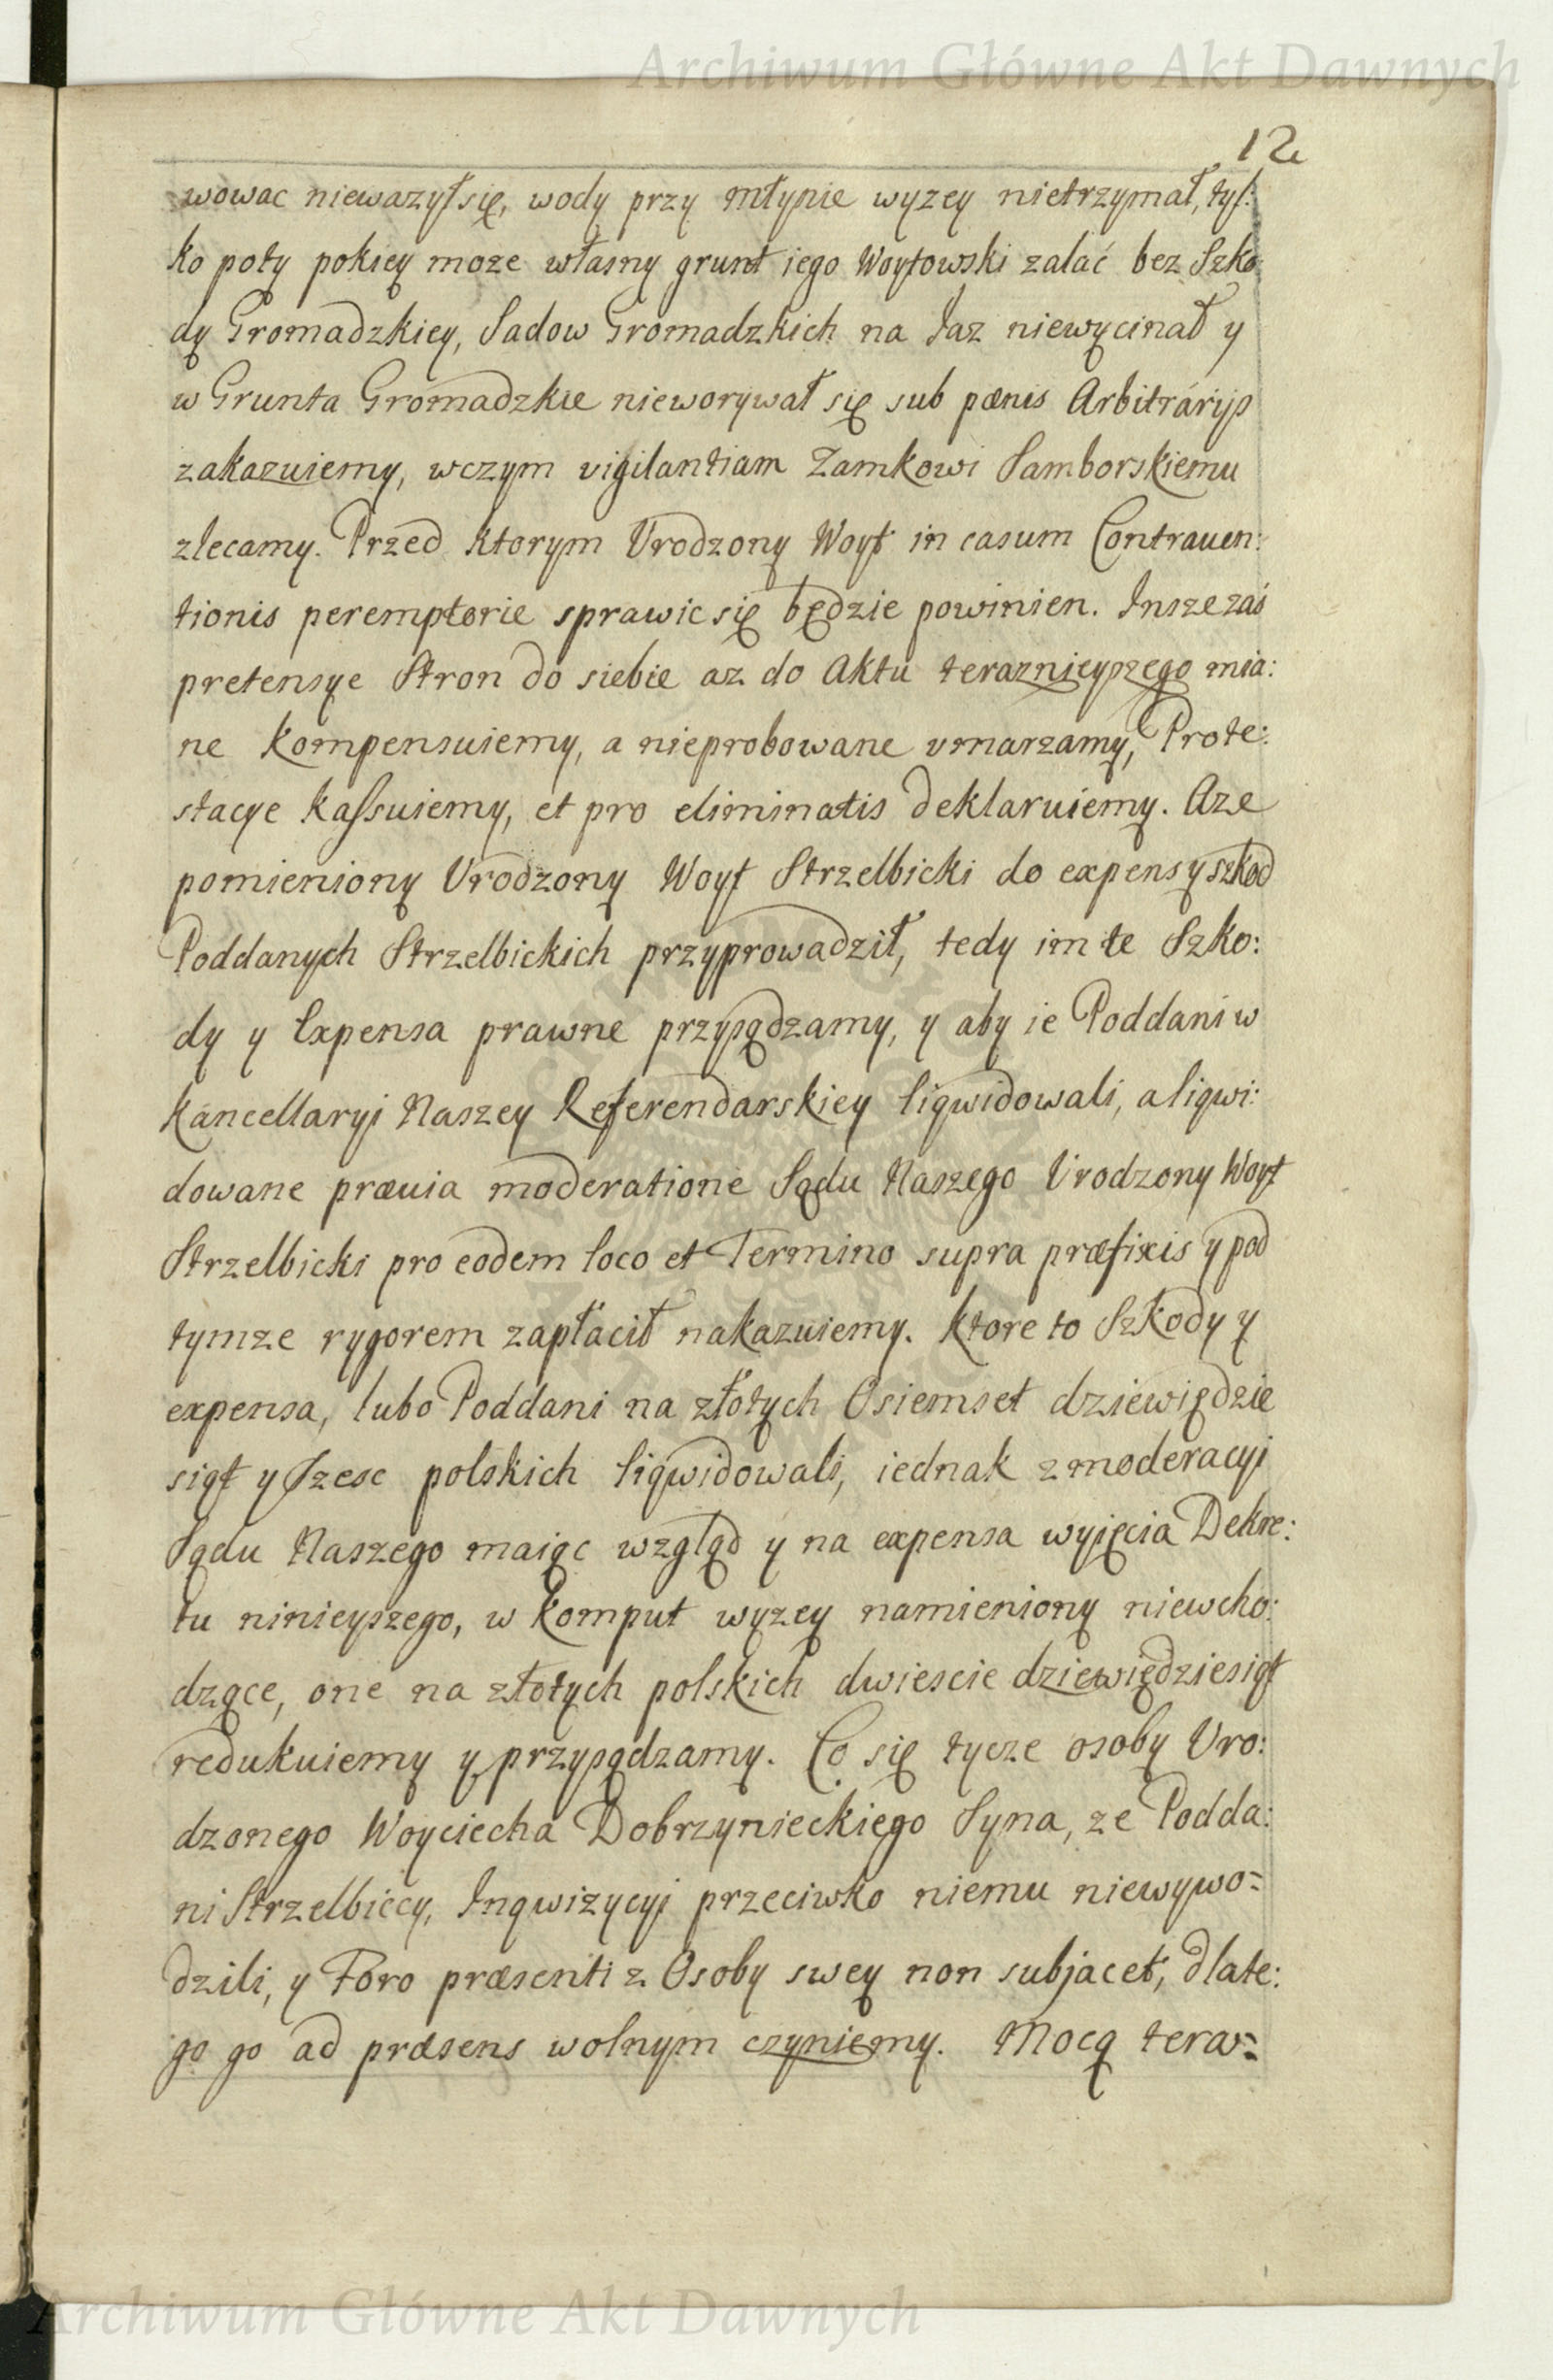 Archiwum Główne Akt Dawnych
12
wowac niewazyłsię, wody przy młynie wyzey nietrzymał, tyl:
ko poty pokiey moze własny grunt iego Woytowski zalać bez Szko
dy Gromadzkiey, Sadow Gromadzkich na Jaz niewycinał y
w Grunta Gromadzkie nieworywał się sub pœnis Arbitrarijs
zakazuiemy, wczym vigilantiam Zamkowi Samborskiemu
zlecamy. Przed ktorym Vrodzony Woyt in casum Contrauen:
tionis peremptorie sprawic się będzie powinien. Insze zaś
pretensye Stron do siebie az do Aktu teraznieyszego mia:
ne kompensuiemy, a nieprobowane vmarzamy, Prote:
stacye kassuiemy, et pro eliminatis deklaruiemy. Aze
pomieniony Vrodzony Woyt Strzelbicki do expens y szkod
Poddanych Strzelbickich przyprowadził, tedy im te Szko:
dy y Expensa prawne przysądzamy, y aby ie Poddani w
kancellaryi Naszey Referendarskiey liqwidowali, a liqwi:
dowane præuia moderatione Sądu Naszego Vrodzony Woyt
Strzelbicki pro eodem loco et Termino supra præfixis y pod
tymze rygorem zapłacił nakazuiemy. Ktore to Szkody y
expensa, lubo Poddani na złotych Osiemset dziewiędzie
siąt y Szesc polskich liqwidowali, iednak z moderacyi
Sądu Naszego maiąc wzgląd y na expensa wyięcia Dekre:
tu ninieyszego, w komput wyzey namieniony niewcho:
dzące, one na złotych polskich dwiescie dziewiędziesiąt
redukuiemy y przysądzamy. Co się tycze osoby Vro:
dzonego Woyciecha Dobrzynieckiego Syna, ze Podda:
ni Strzelbiccy, Inqwizycyi przeciwko niemu niewywo=
dzili, y Foro præsenti z Osoby swey non subjacet, dlate:
go go ad præsens wolnym czyniemy. Mocą teraz=
Archiwum Główne Akt Dawnych